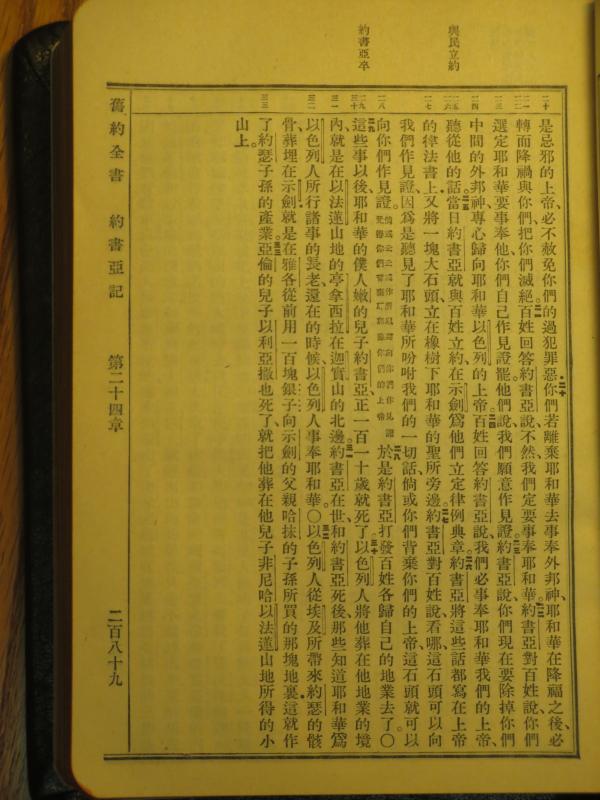 與民立約
約書亞卒
二十
二一
二二
二三
二四
二五
二六
二七
二八
二九
三十
三一
三二
三三
是忌邪的上帝、必不赦免你們的過犯罪惡。二十你們若離棄耶和華去事奉外邦神、耶和華在降福之後、必
轉而降禍與你們、把你們滅絕。二一百姓回答約書亞說、不然、我們定要事奉耶和華。二二約書亞對百姓說、你們
選定耶和華、要事奉他、你們自己作見證罷。他們說、我們願意作見證。二三約書亞說、你們現在要除掉你們
中間的外邦神、專心歸向耶和華以色列的上帝。二四百姓回答約書亞說、我們必事奉耶和華我們的上帝、
聽從他的話。二五當日約書亞就與百姓立約、在示劍爲他們立定律例典章。二六約書亞將這些話都寫在上帝
的律法書上、又將一塊大石頭立在橡樹下耶和華的聖所旁邊。二七約書亞對百姓說、看哪、這石頭可以向
我們作見證、因爲是聽見了耶和華所吩咐我們的一切話、倘或你們背棄你們的上帝、這石頭就可以
向你們作見證。二八於是約書亞打發百姓各歸自己的地業去了。〇
二九這些事以後、耶和華的僕人嫩的兒子約書亞、正一百一十歲、就死了。三十以色列人將他葬在他地業的境
內、就是在以法蓮山地的亭拿西拉、在迦實山的北邊。三一約書亞在世、和約書亞死後那些知道耶和華爲
以色列人所行諸事的長老還在的時候、以色列人事奉耶和華。〇三二以色列人從埃及所帶來約瑟的骸
骨、葬埋在示劍、就是在雅各從前用一百塊銀子向示劍的父親哈抹的子孫所買的那塊地裏、這就作
了約瑟子孫的產業。三三亞倫的兒子以利亞撒也死了、就把他葬在他兒子非尼哈以法蓮山地所得的小
山上。
舊約全書　約書亞記　第二十四章　二百八十九